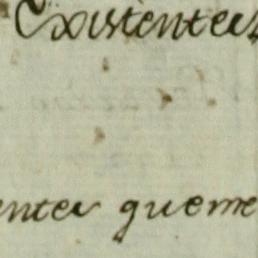 Existentes
entes queme